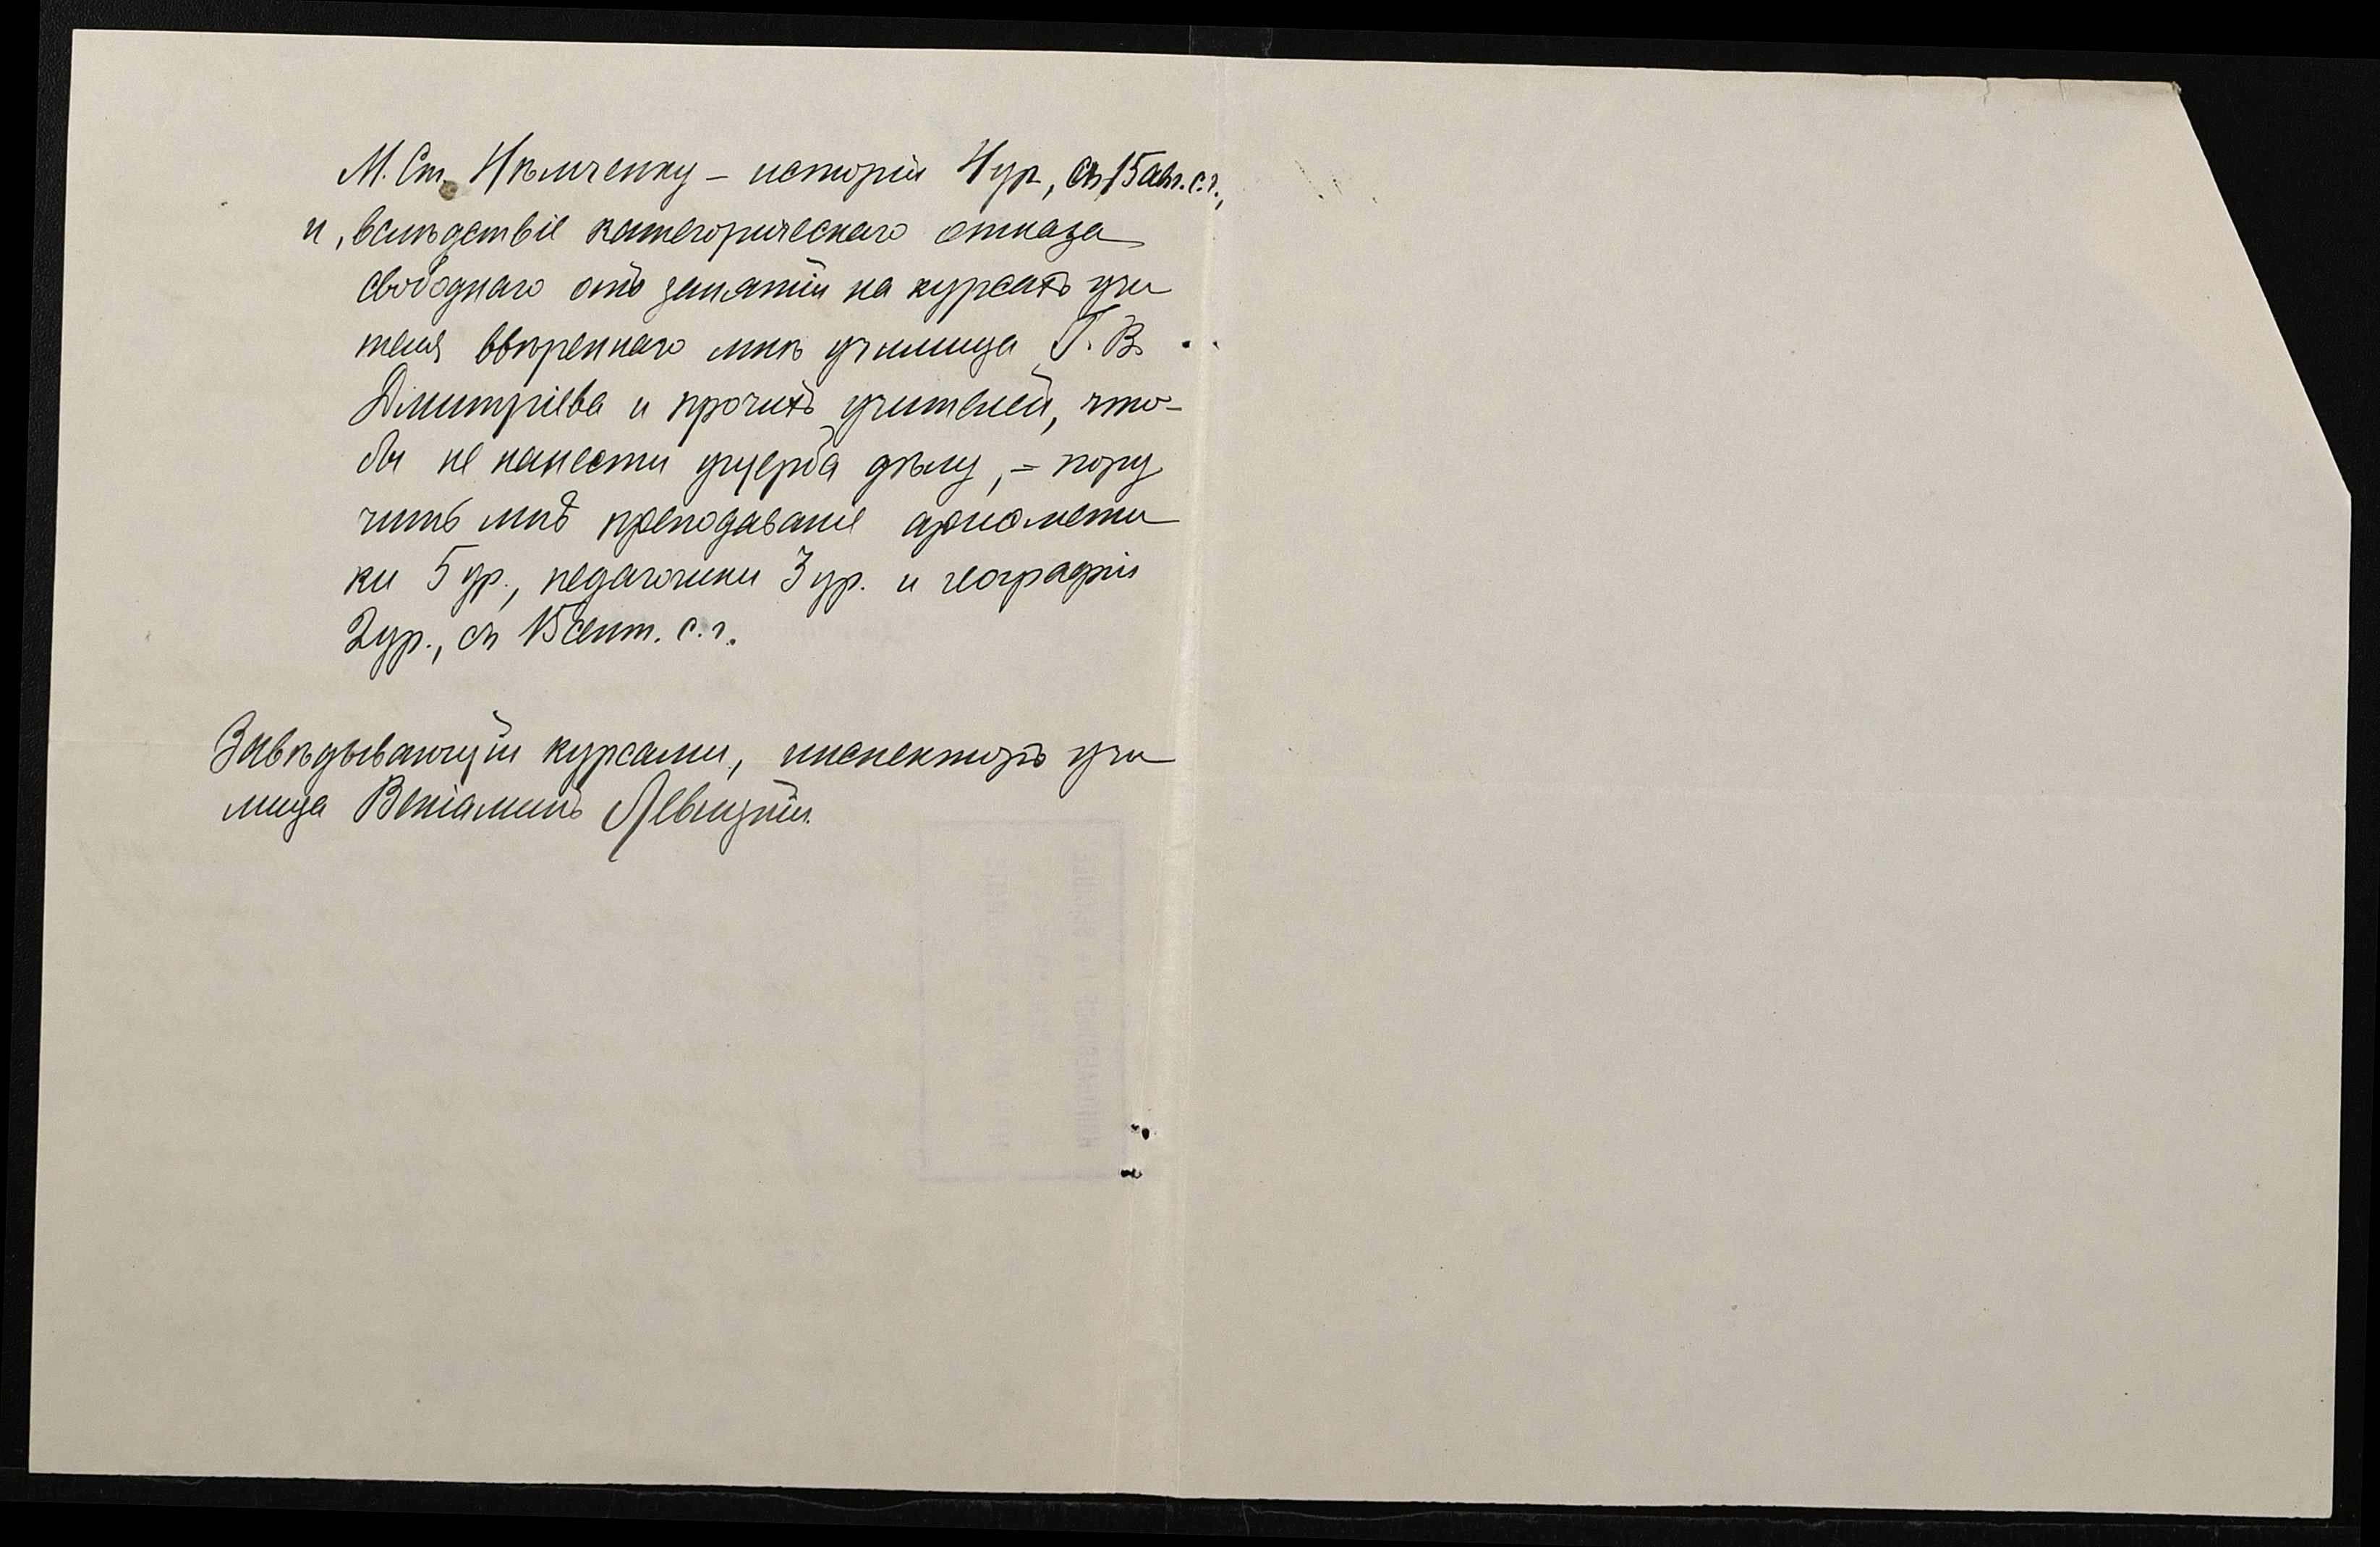 М. Ст. Нѣмченку – исторіи 4 ур., съ 15 авг. с. г.,
и, вслѣдствіе категорическаго отказа
свободнаго отъ занятій на курсахъ учи
теля ввѣреннаго мнѣ училища Г. В.
Дмитріева и прочихъ учителей, что-
бы не нанести ущерба дѣлу, – пору
чить мнѣ преподаваніе ариѳмети
ки 5 ур., педагогики 3 ур. и географіи
2 ур., съ 15 сент. с. г.
Завѣдывающій курсами, инспекторъ учи
лища Веніаминъ Левицкій.